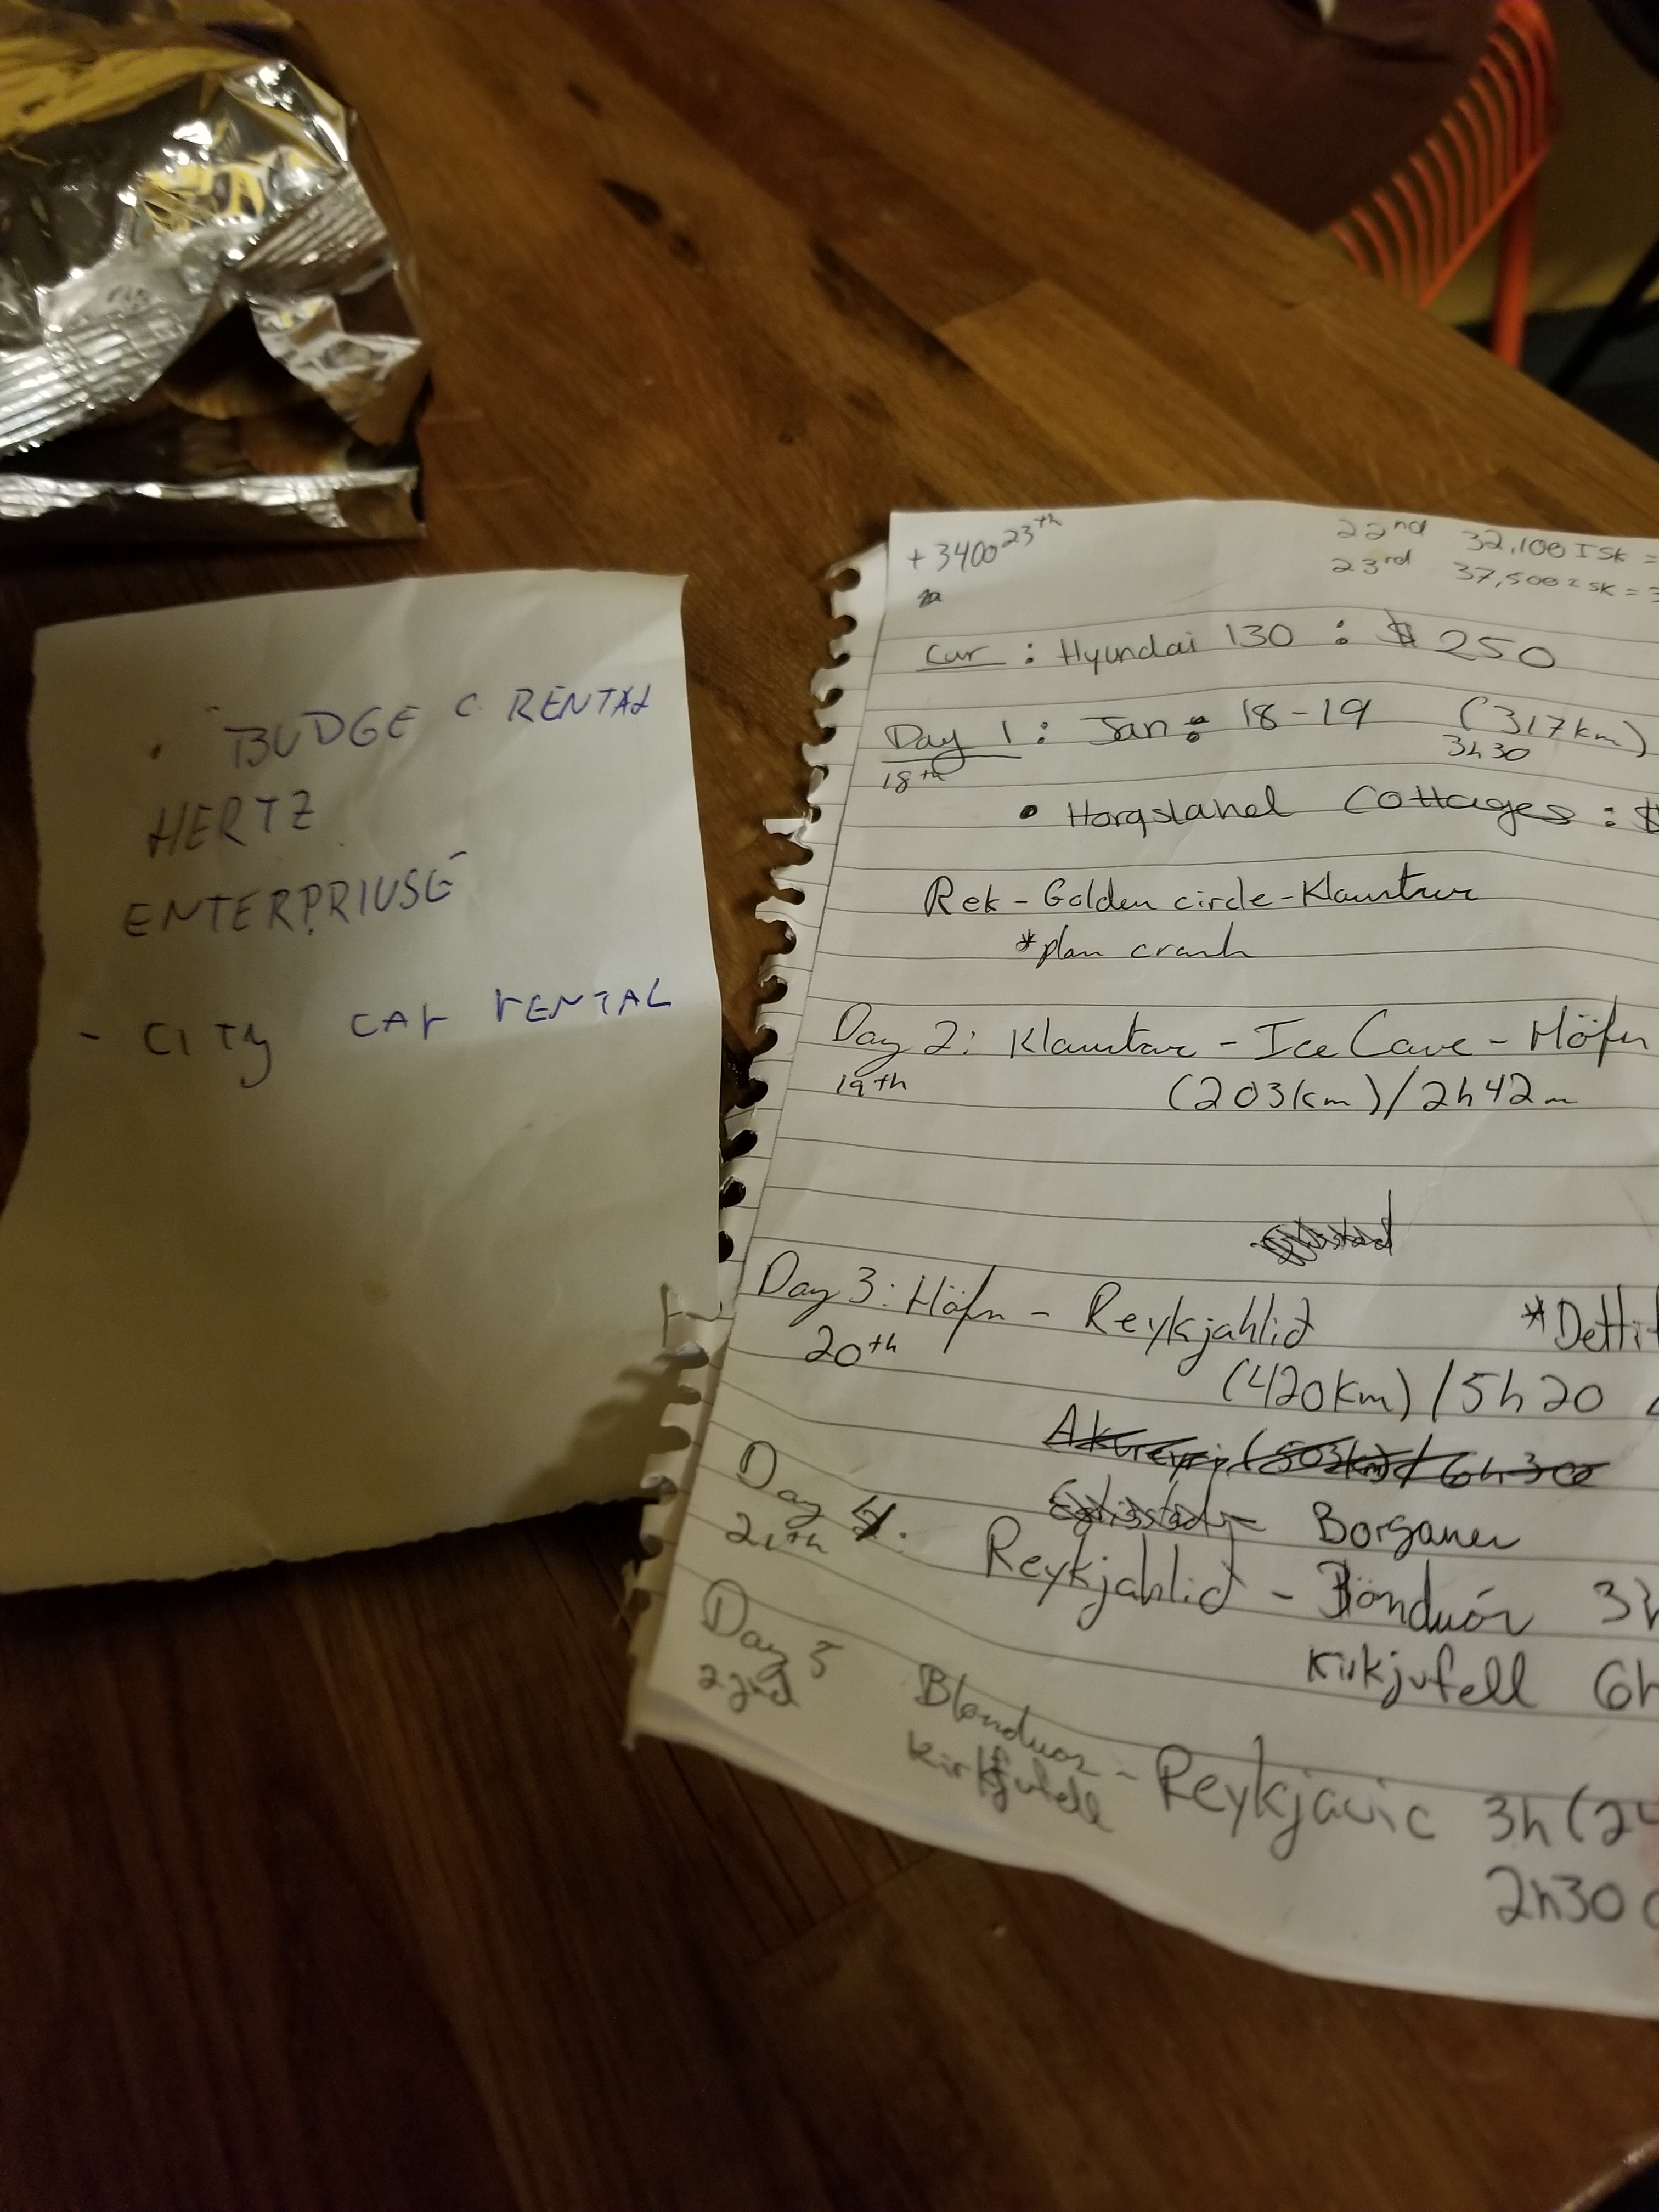 BUDGE C RENTAL
HERTZ
ENTERPRIUSE
- CITY CAR RENTAL
+ 3400 23th
22nd 32,100 ISK =
23rd 37,500 ISK = 3
Car : Hyundai I30 : $250
Day 1 : Jan : 18-19 (317km)
18th 3h30
• Horgslahel Cottages : $
Rek - Golden circle - Klaustur
*plan crash
Day 2: Klaustur - Ice Cave - Höfn
19th (203km)/2h42m
Day 3: Höfn - Reykjahlid *Detti
20th (420km) / 5h20
Akureyri (503km) / 6h30
Day 4: Borganer
21th Reykjahlid - Blönduós 3h
Kirkjufell 6h
Day 5
22nd Blonduos - Reykjavic 3h (24
Kirkjufell
2h30